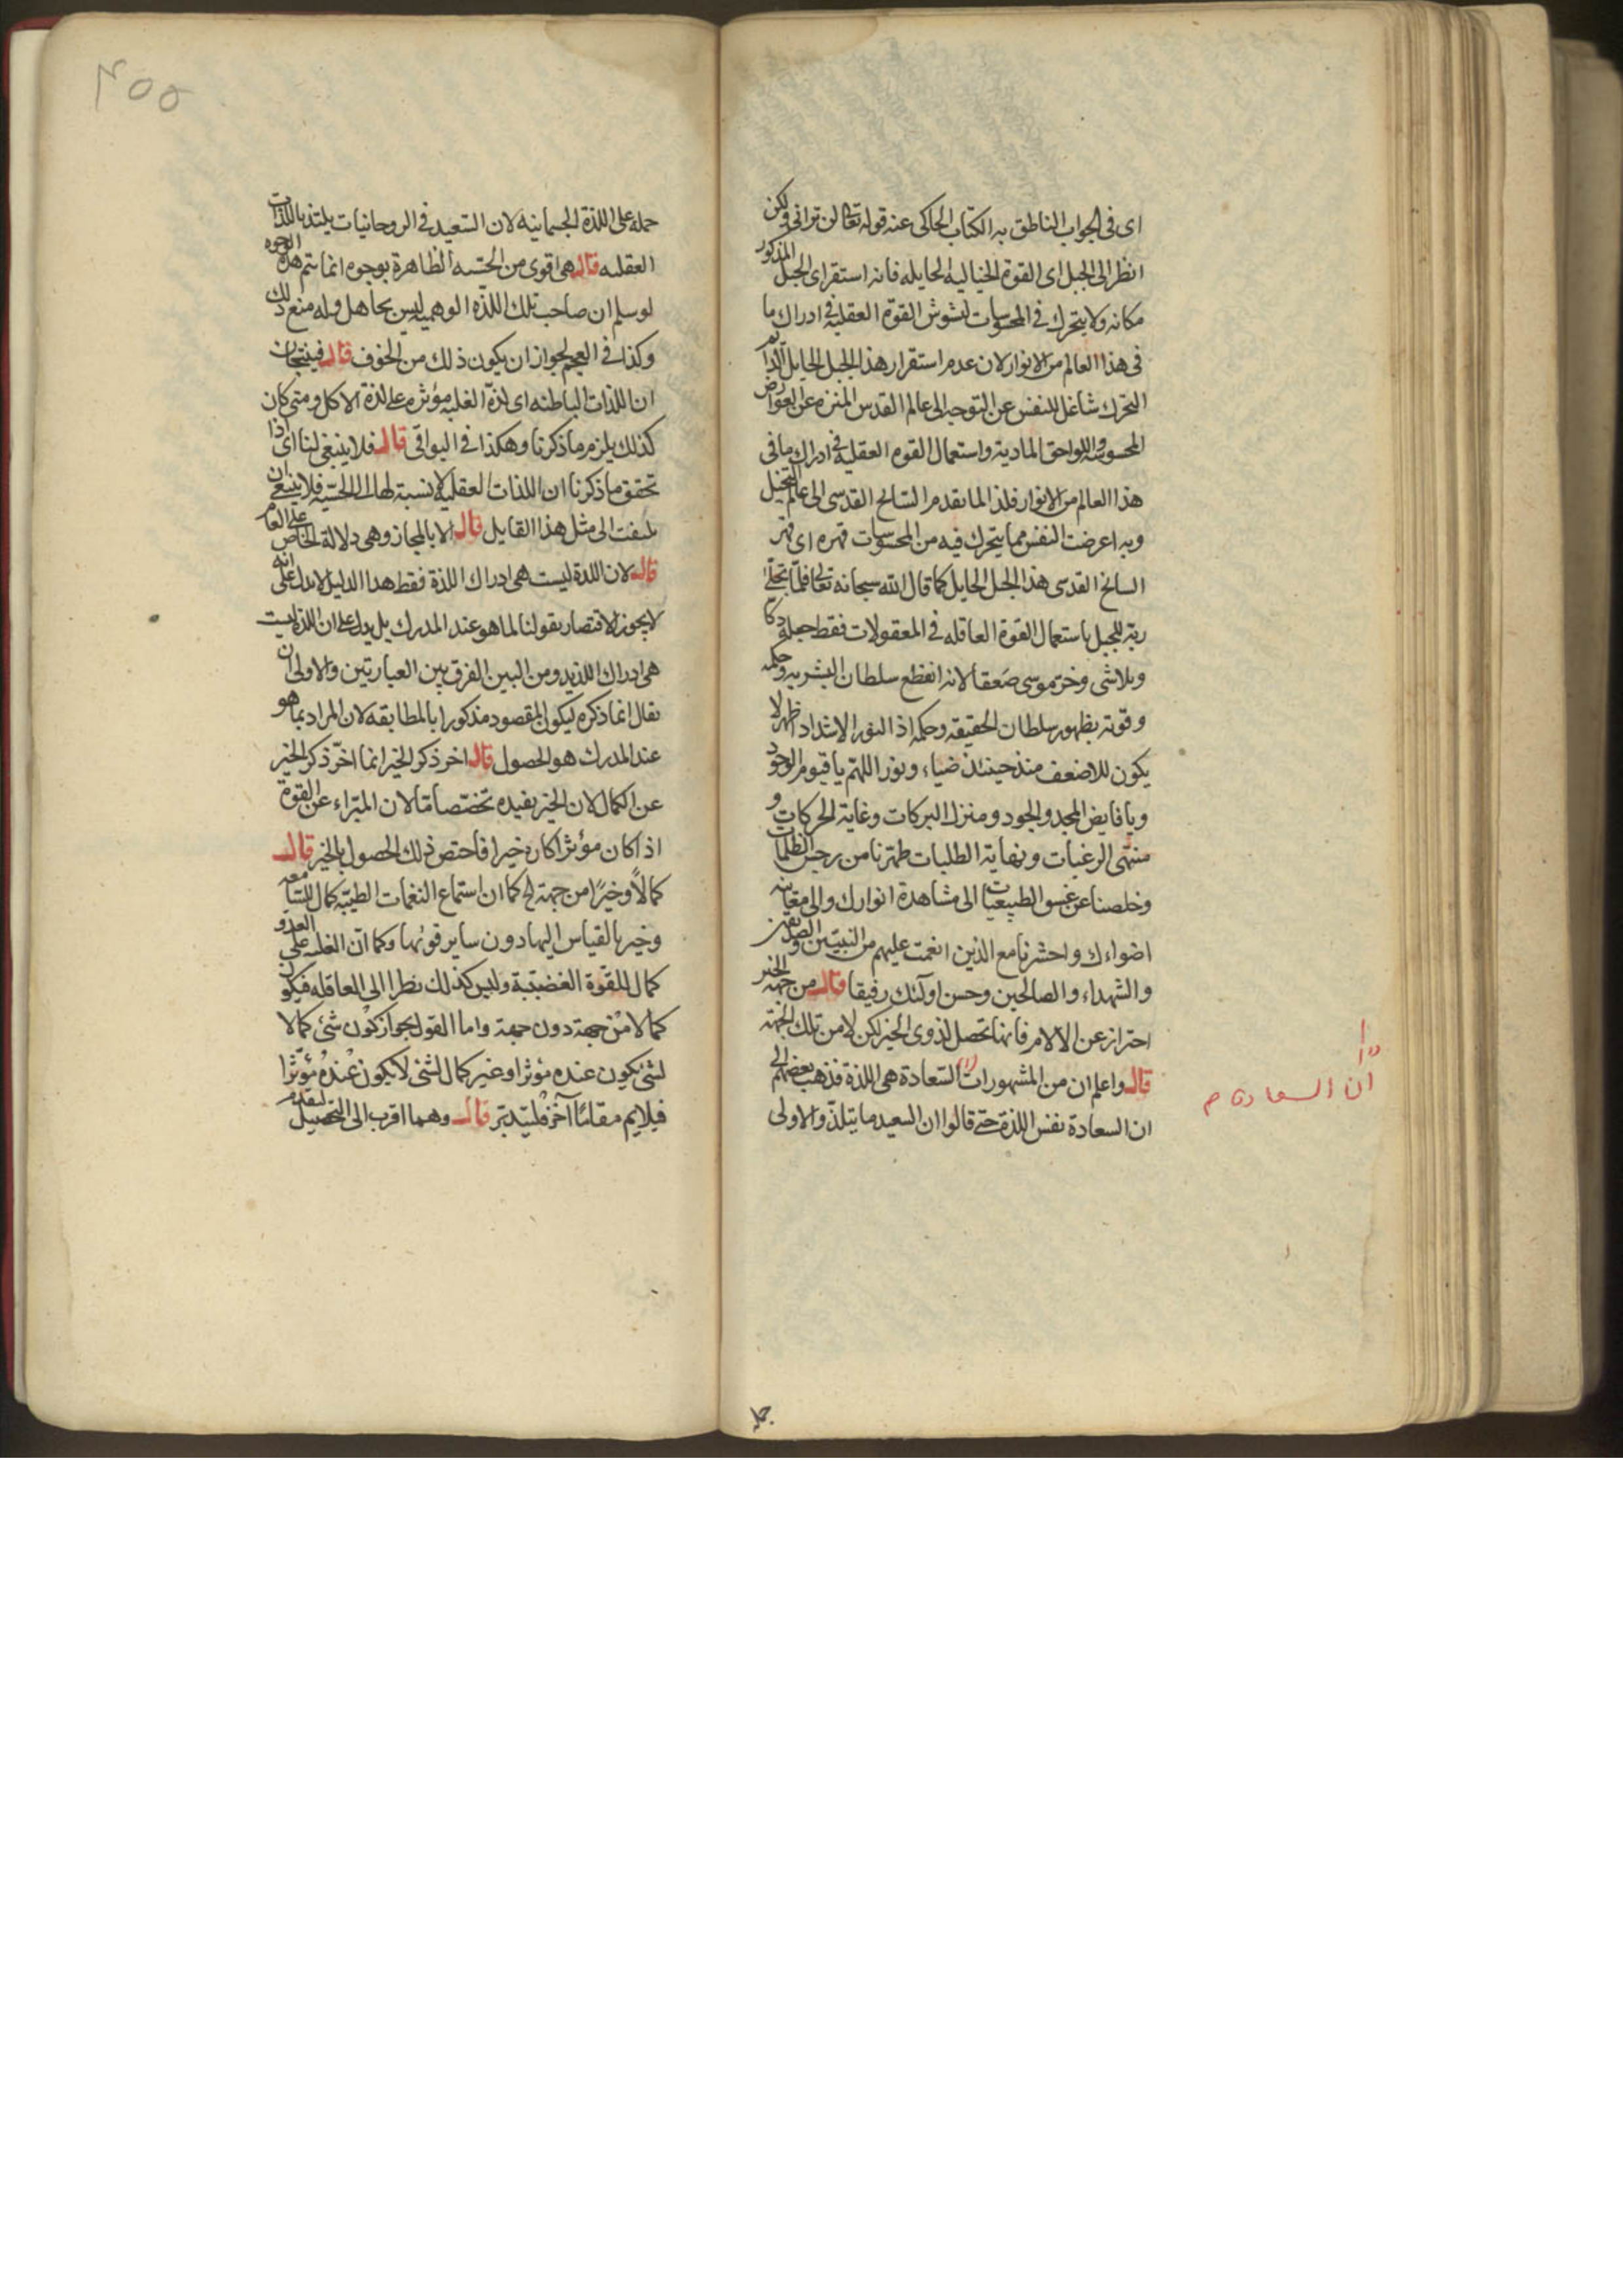 اى فى الجواب الناطق به الكتاب الحاكى عنه قوله تعالى لن ترانى ولكن
انظر الى الجبل اى القوة الخياليه الحايله فانه استقر اى الجبل المذكور
مكانه ولا يتحرك فى المحسوسات لتشوش القوة العقلية فى ادراك ما
فى هذا العالم من الانوار لان عدم استقرار هذا الجبل الحايل الدايم
التحرك شاغل للنفس عن التوجه الى عالم القدس المنزه عن العوارض
المحسوسه واللواحق المادية واستعمال القوه العقليه فى ادراك ما فى
هذا العالم من الانوار فلذا لما تقدم السانح القدسى الى عالم التخيل
وبه اعرضت النفس مما يتحرك فيه من المحسوسات قهره اى قهر
السانح القدسى هذا الجبل الحايل كما قال الله سبحانه تعالى فلما تجلى
ربه للجبل باستعمال القوة العاقله فى المعقولات فقط جعله دكا
وتلاشى وخر موسى صعقا لانه انقطع سلطان البشريه وحكمه
وقوته بظهور سلطان الحقيقه وحكمه اذ النور الاشد اذا ظهر لا
يكون للاضعف منه حينئذ ضياء ونور اللهم يا قيوم الوجود
ويا فايض المجد والجود ومنزل البركات وغاية الحركات و
منتهى الرغبات ونهاية الطلبات طهرنا من رجس الظلمات
وخلصنا عن غسق الطبيعيات الى مشاهدة انوارك والى معاينه
اضواءك واحشرنا مع الذين انعمت عليهم من النبيين والصديقين
والشهداء والصالحين وحسن اولئك رفيقا قال من جهه الخير
احتراز عن الالام فانها تحصل لذوى الخير لكن لا من تلك الجهة
قال واعلم ان من المشهورات السعادة هى اللذة فذهب بعضهم الى
ان السعادة نفس اللذة حتى قالوا ان السعيد ما يتلذ والاولى
ان السعادة م
حمله
٤٥٥
حمله على اللذة الجسمانيه لان السعيد فى الروحانيات يلتذ باللذات
العقليه قال هى اقوى من الحسيه الظاهرة بوجوه انما يتم هذه الوجوه
لو سلم ان صاحب تلك اللذه الوهميه ليس بجاهل وله منع ذلك
وكذا فى العجم لجواز ان يكون ذلك من الخوف قال فينتجان
ان اللذات الباطنه اى لذة الغلبه مؤثره على لذة الاكل ومتى كان
كذلك يلزم ما ذكرنا وهكذا فى البواقى قال فلا ينبغى لنا اى اذا
تحقق ما ذكرنا ان اللذات العقلية لا نسبة لها الى الحسيه فلا ينبغى ان
يلتفت الى مثل هذا القايل قال الا بالمجاز وهى دلالة الخاص على العام
قال لان اللذة ليست هى ادراك اللذة فقط هذا الدليل لا يدل على انه
لا يجوز الاقتصار بقولنا لما هو عند المدرك بل يدل على ان اللذة ليست
هى ادراك اللذيذ ومن البين الفرق بين العبارتين والاولى ان
يقال انما ذكره ليكون المقصود مذكورا بالمطابقه لان المراد بما هو
عند المدرك هو الحصول قال اخر ذكر الخير انما اخر ذكر الخير
عن الكمال لان الخير يفيده تخصصا ما لان المبراء عن القوة
اذا كان مؤثرا كان خيرا فاختص ذلك الحصول بالخير قال
كمالا وخيرا من جهة الخ كما ان استماع النغمات الطيبه كمال للسامعه
وخير بالقياس اليها دون ساير قوتها وكما ان الغلبه على العدو
كمال للقوة الغضبية وليس كذلك نظرا الى العاقله فيكون
كمالا من جهة دون جهة واما القول بجواز كون شئ كمالا
لشئ يكون عنده مؤثرا وغير كمال لشئ لا يكون عنده مؤثرا
فيلايم مقاما آخر فليتدبر قال وهما اقرب الى التحصيل لتقدم